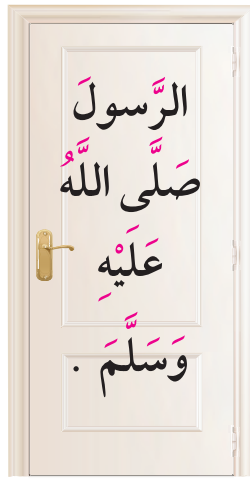 الرَّسولَ
صَلَّى اللَّهُ
عَلَيْهِ
وَسَلَّمَ .